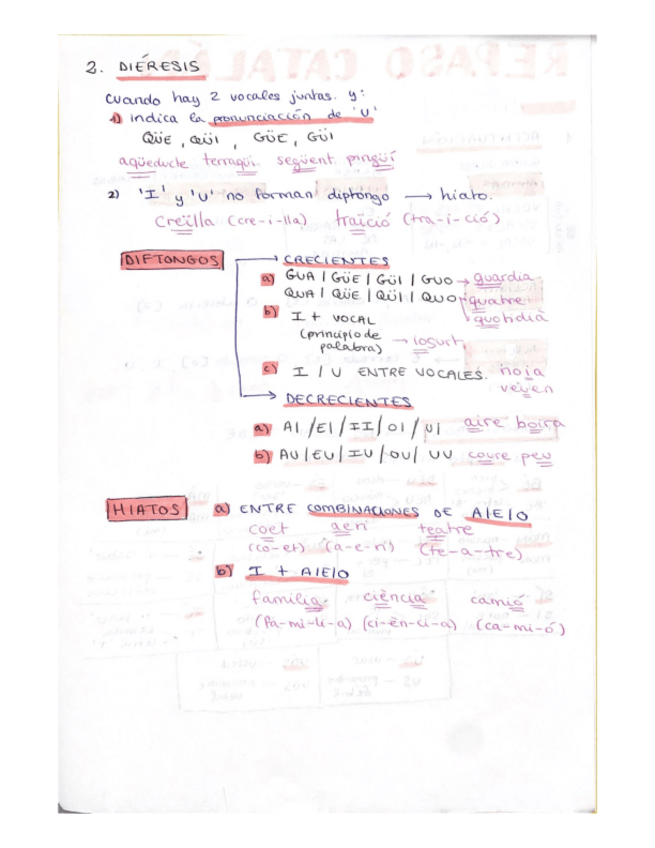 2. DIÉRESIS
cuando hay 2 vocales juntas. y:
1) indica la pronunciación de 'U'
QÜE, QÜI, GÜE, GÜI
aqüeducte terraqüi. següent. pingüí
2) 'I' y 'U' no forman diptongo → hiato.
Creïlla (cre-i-lla) traïció (tra-i-ció)
DIFTONGOS
CRECIENTES
a) GUA | GÜE | GÜI | GUO → guardia
QUA | QÜE | QÜI | QUO quatre
quotidià
b) I + VOCAL
(principio de
palabra) → iogurt,
c) I / U ENTRE VOCALES. noia
veuen
DECRECIENTES
a) AI / EI / II / OI / UI aire boira
b) AU | EU | IU | OU | UU coure peu
HIATOS
a) ENTRE COMBINACIONES DE A|E|O
coet aeri teatre
(co-et) (a-e-ri) (te-a-tre)
b) I + A|E|O
familia. ciència camió
(fa-mi-li-a) (ci-èn-ci-a) (ca-mi-ó)